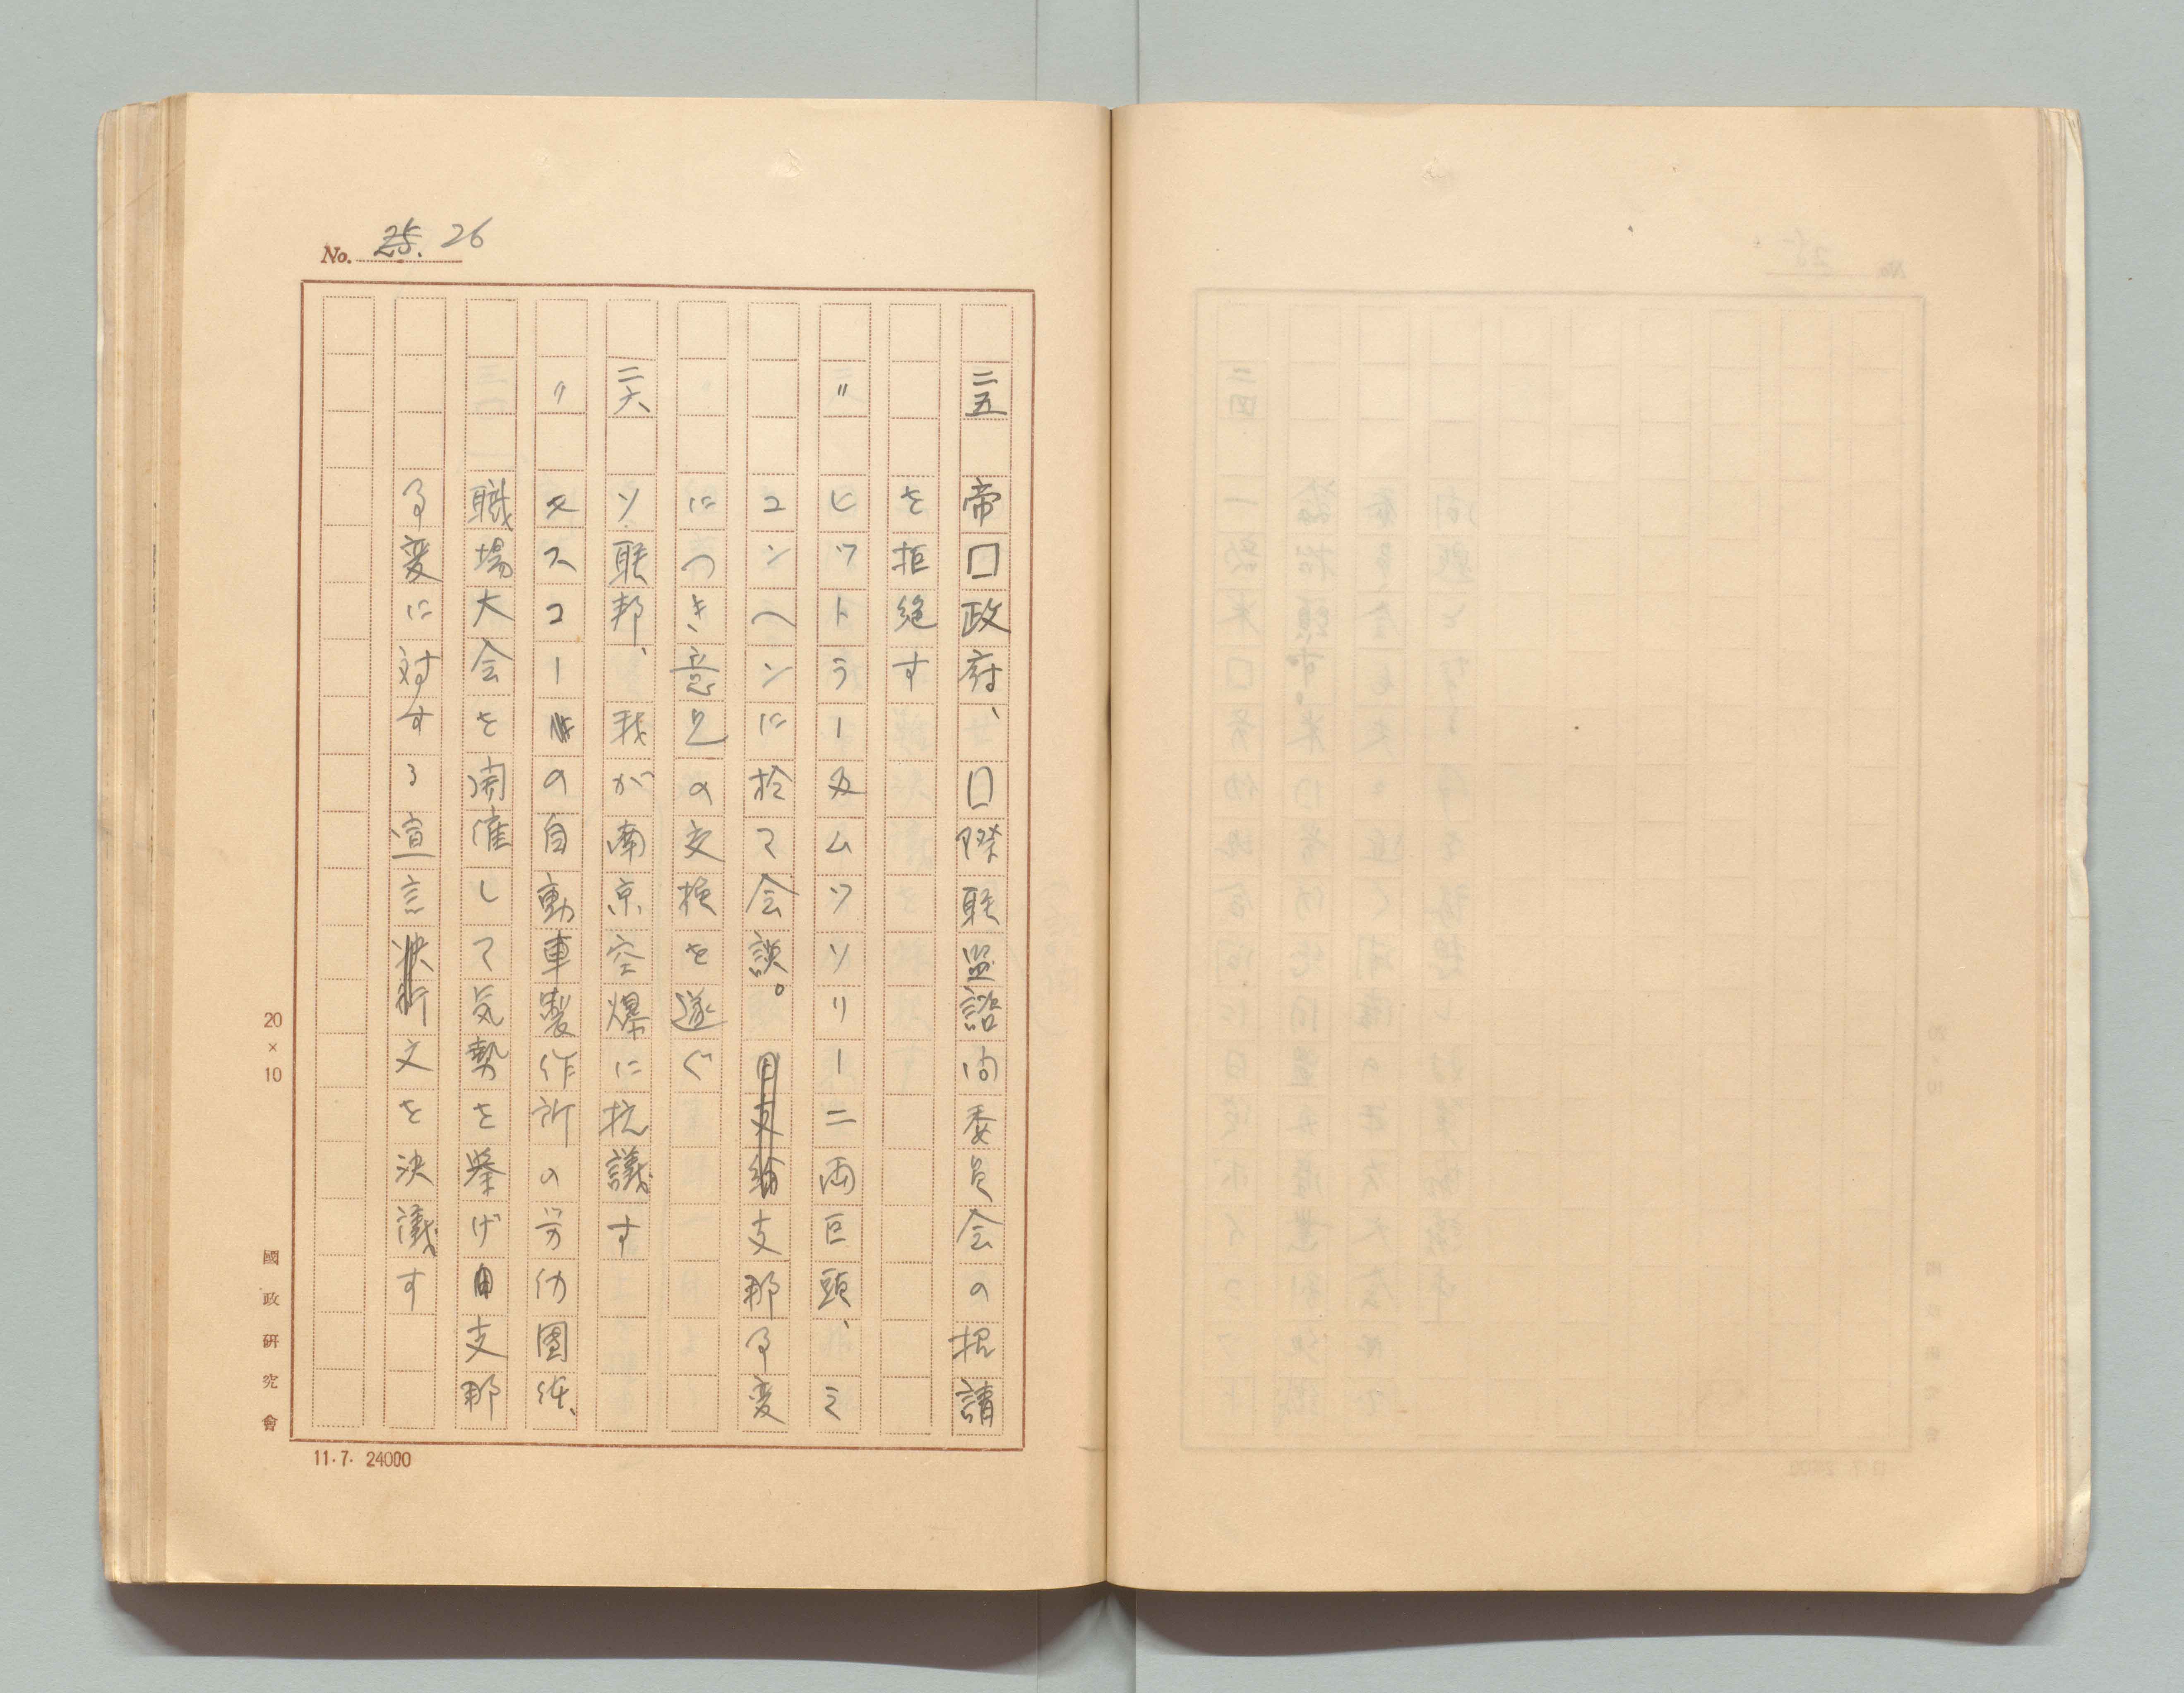 No. 25. 26
二五 帝囗政府、囗際联盟諮问委員会の招請
を拒絶す
〃 ヒットラー、ムッソリーニ両巨頭、ミ
ュンヘンに於て会談。支那事変
につき、意見の交換を遂ぐ
二六、 ソ联邦、我が南京空爆に抗議す
〃 モスコーの自動車製作所の労仂團体、
職場大会を開催して気勢を挙げ支那
事変に対する宣言文を決議す
20×10
國政研究會
11.7. 24000